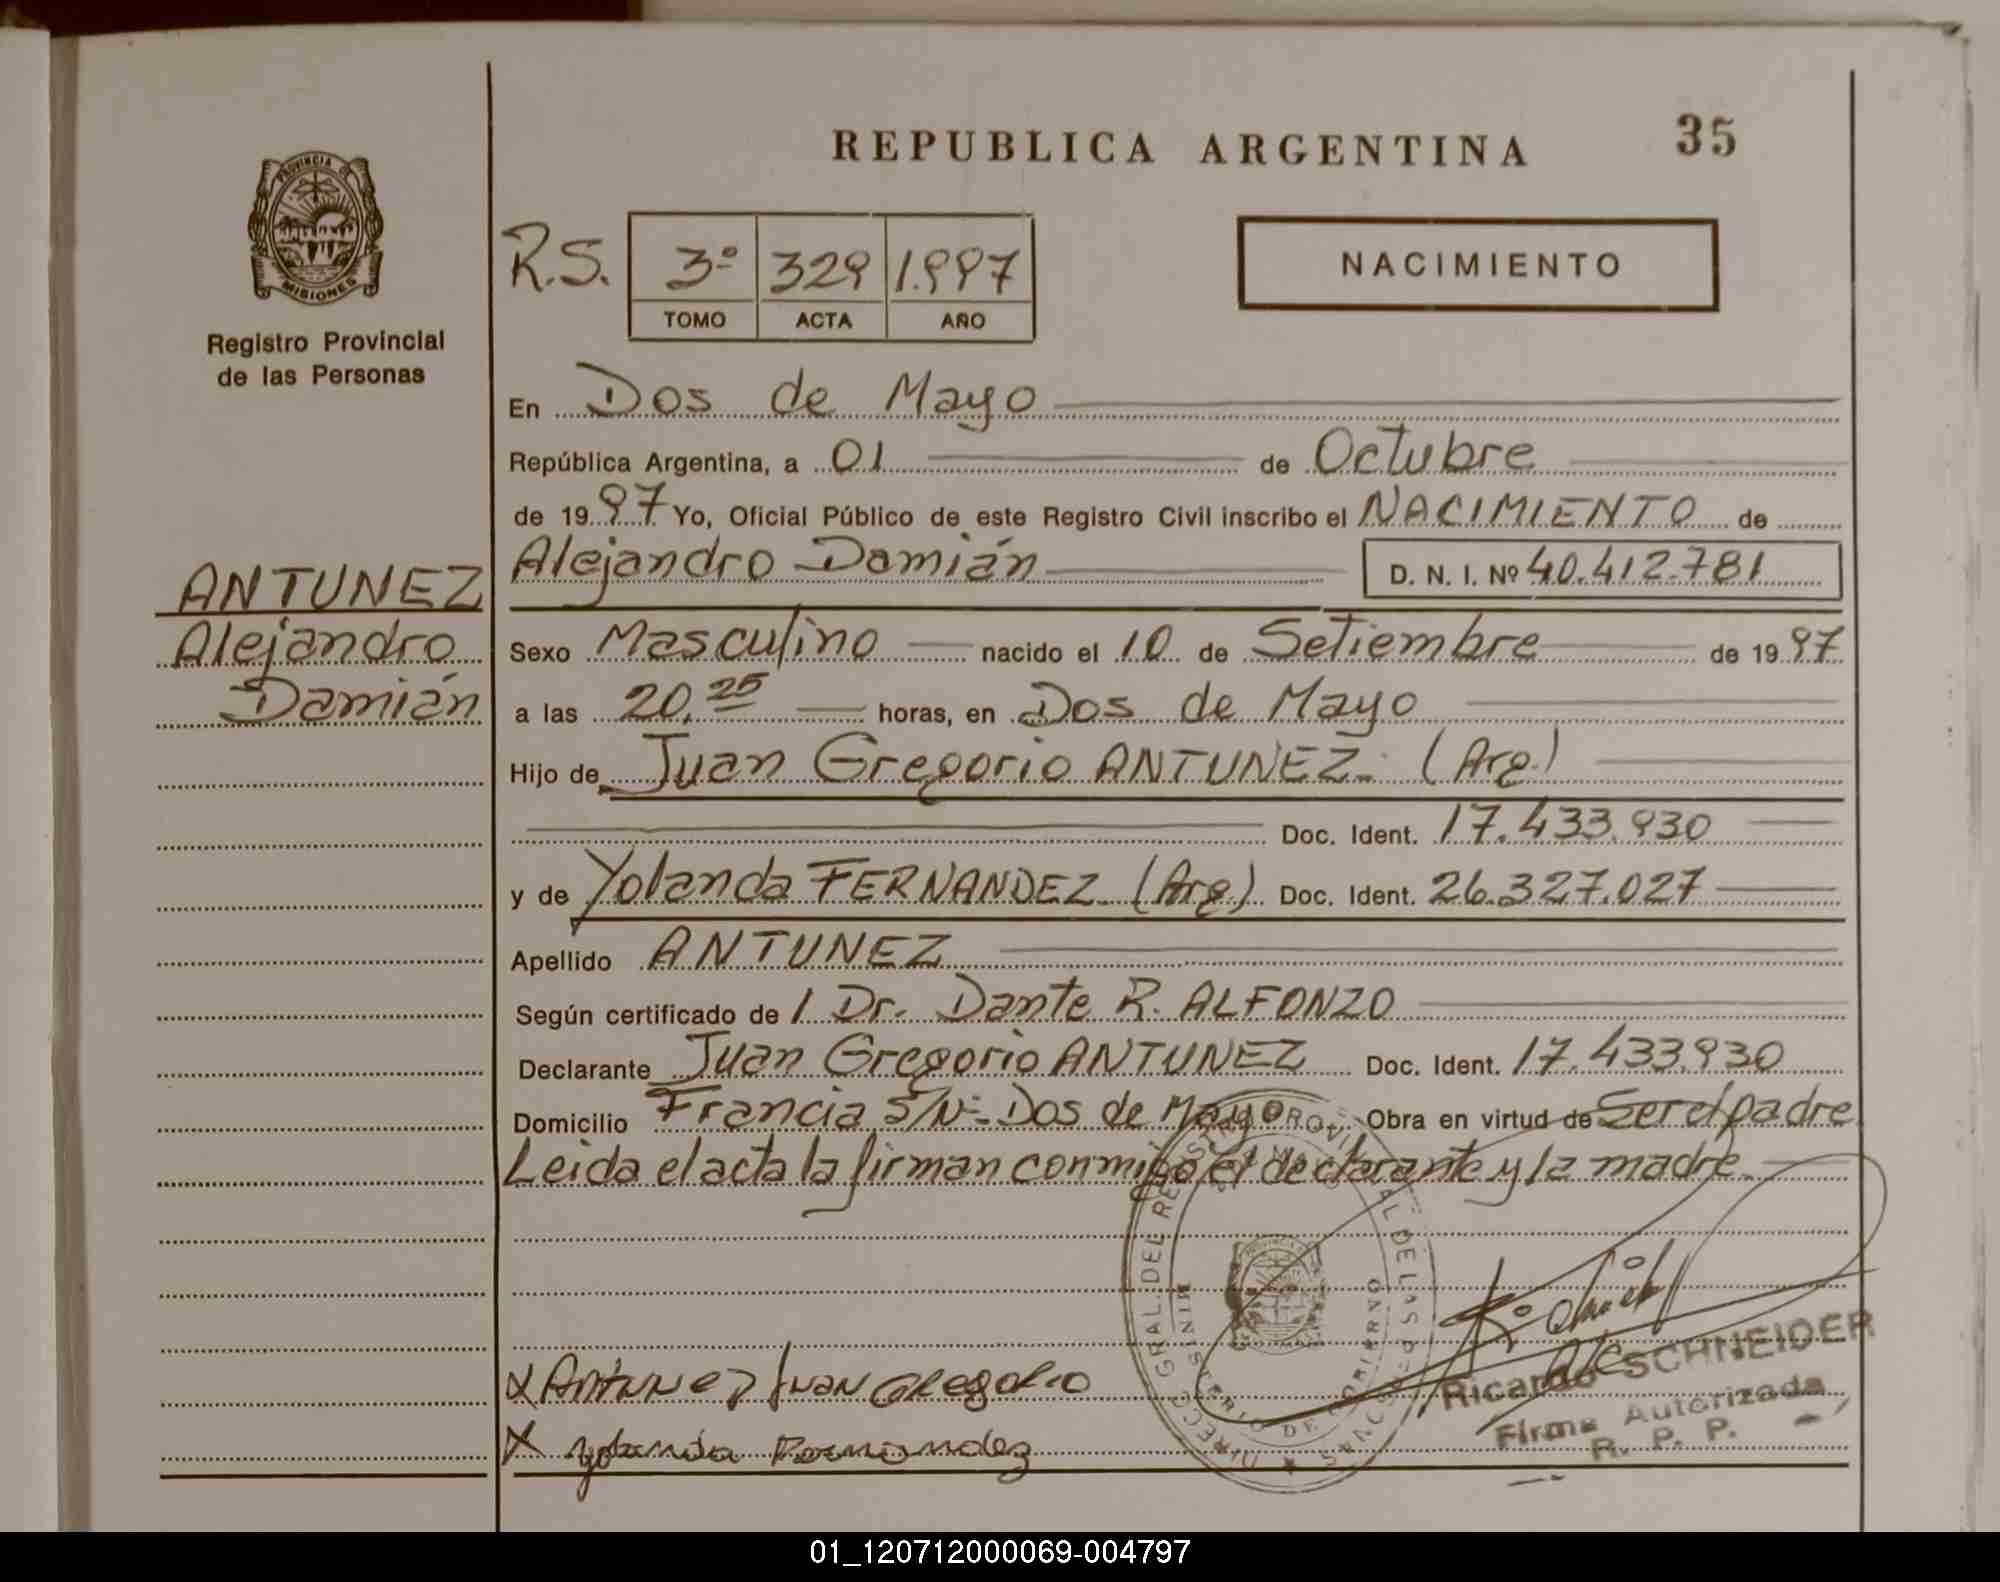 REPUBLICA ARGENTINA 35
PROVINCIA DE
MISIONES
Registro Provincial
de las Personas
R.S. 3º 329 1.997
TOMO ACTA AÑO
NACIMIENTO
ANTUNEZ
Alejandro
Damián
En Dos de Mayo
República Argentina, a 01 de Octubre
de 1997 Yo, Oficial Público de este Registro Civil inscribo el NACIMIENTO de
Alejandro Damián D. N. I. Nº 40.412.781
Sexo Masculino nacido el 10 de Setiembre de 1997
a las 20,25 horas, en Dos de Mayo
Hijo de Juan Gregorio ANTUNEZ (Arg)
Doc. Ident. 17.433.930
y de Yolanda FERNANDEZ (Arg) Doc. Ident. 26.327.027
Apellido ANTUNEZ
Según certificado de / Dr. Dante R. ALFONZO
Declarante Juan Gregorio ANTUNEZ Doc. Ident. 17.433.930
Domicilio Francia S/Nº Dos de Mayo Obra en virtud de Ser el padre
Leida el acta la firman conmigo el declarante y la madre
DIRECC. GRAL. DEL REGISTRO PROVINCIAL DE LAS PERSONAS
MINISTERIO DE GOBIERNO
Ricardo SCHNEIDER
Firma Autorizada
R. P. P.
X Antunez Juan Gregorio
X Yolanda Fernandez
01_120712000069-004797